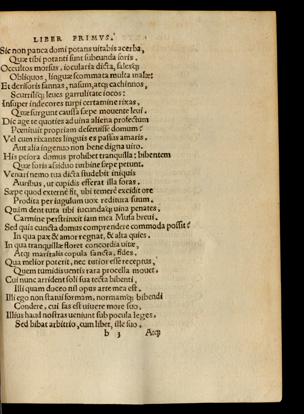 LIBER PRIMVS.
Sic non pauca domi potans uitabis acerba,
Quæ tibi potanti sunt subeunda foris.
Occultos morsus, iocularia dicta, salesq;
Obliquos, linguæ scommata multa malæ:
Et derisoris sannas, nasum, atq; cachinnos,
Scurrilisq; leues garrulitate iocos:
Insuper indecores turpi certamine rixas,
Quæ surgunt causa sæpe mouente leui.
Dic age te quoties ad uina aliena profectum
Pœnituit propriam deseruisse domum?
Vel cum rixantes linguis es passus amaris.
Aut alia ingenuo non bene digna uiro.
His peiora domus prohibet tranquilla: bibentem
Quæ foris assiduo turbine sæpe petunt.
Venari nemo tua dicta studebit iniquis
Auribus, ut cupidis efferat illa foras.
Sæpe quod externè fit, ubi temerè excidit ore
Prodita per iugulum uox reditura suum.
Quim dent tuta tibi iucundaq; uina penates,
Carmine perstrinxit iam mea Musa breui.
Sed quis cuncta domus comprendere commoda possit?
In qua pax & amor regnat, & alta quies.
In qua tranquillæ floret concordia uitæ,
Atq; maritalis copula sancta, fides.
Qua melior poterit, nec tutior esse receptus,
Quem tumidis uentis rara procella mouet.
Cui nunc arrident soli sua tecta bibenti,
Illi quam doceo nil opus arte mea est.
Illi ego non statui formam, normamq; bibendi
Condere, cui fas est uiuere more suo.
Illius haud nostras ueniunt sub pocula leges.
Sed bibat arbitrio, cum libet, ille suo.
b 3 Atq;